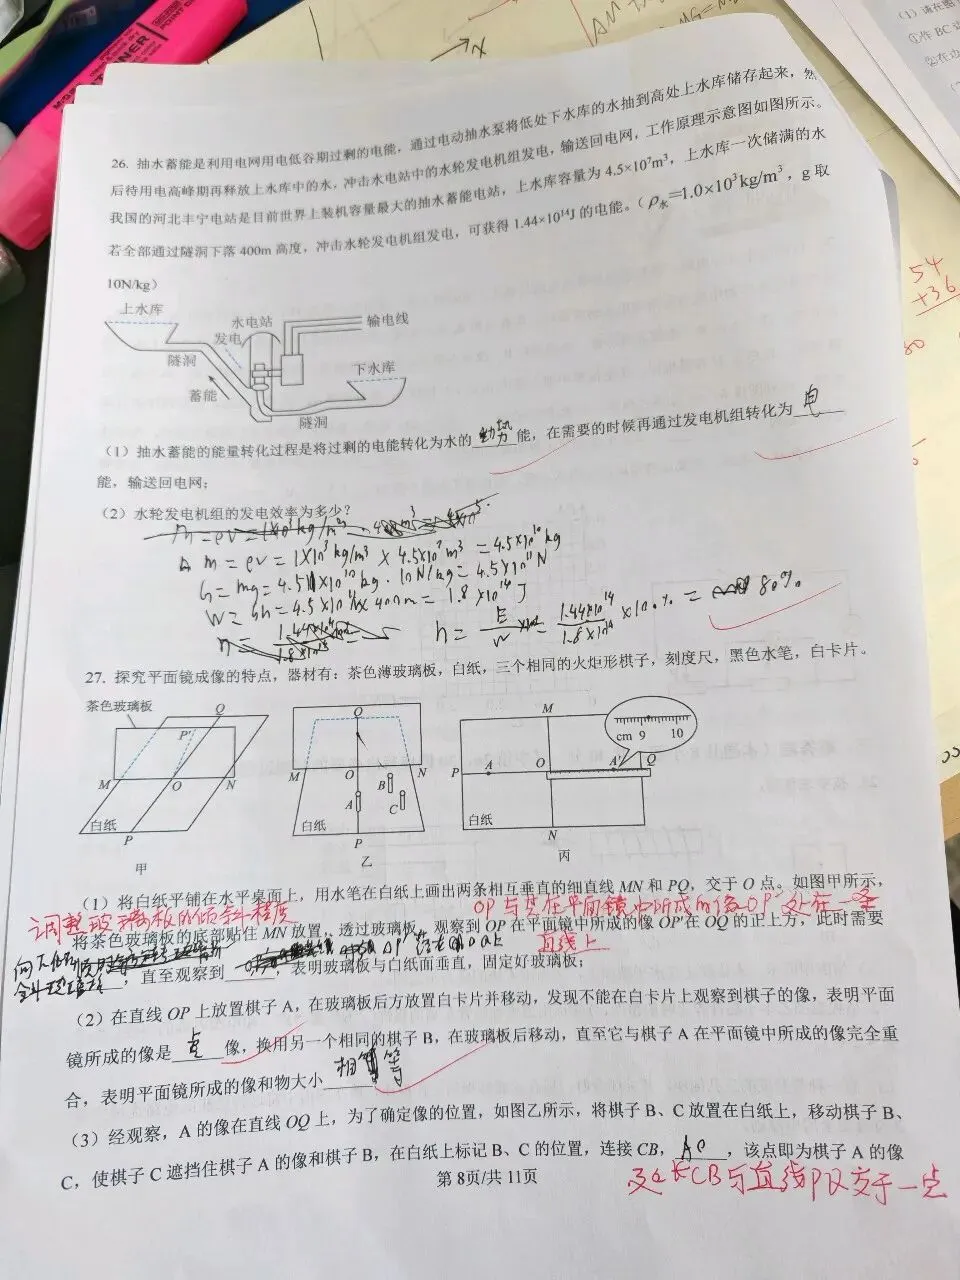 26. 抽水蓄能是利用电网用电低谷期过剩的电能，通过电动抽水泵将低处下水库的水抽到高处上水库储存起来，然
后待用电高峰期再释放上水库中的水，冲击水电站中的水轮发电机组发电，输送回电网，工作原理示意图如图所示。
我国的河北丰宁电站是目前世界上装机容量最大的抽水蓄能电站，上水库容量为 4.5×10⁷m³，上水库一次储满的水
若全部通过隧洞下落 400m 高度，冲击水轮发电机组发电，可获得 1.44×10¹⁴J 的电能。（ρ水=1.0×10³kg/m³，g 取
10N/kg）
54
+36
上水库
水电站
发电
输电线
隧洞
下水库
蓄能
隧洞
（1）抽水蓄能的能量转化过程是将过剩的电能转化为水的 势 能，在需要的时候再通过发电机组转化为 电
能，输送回电网；
（2）水轮发电机组的发电效率为多少？
m=ρv=1×10³kg/m³×4.5×10⁷m³=4.5×10¹⁰kg
G=mg=4.5×10¹⁰kg·10N/kg=4.5×10¹¹N
W=Gh=4.5×10¹¹N×400m=1.8×10¹⁴J
η=E/W=1.44×10¹⁴/1.8×10¹⁴×100%=80%
27. 探究平面镜成像的特点，器材有：茶色薄玻璃板，白纸，三个相同的火炬形棋子，刻度尺，黑色水笔，白卡片。
茶色玻璃板
Q
P'
M
O
N
白纸
P
甲
Q
M
O
N
B
A
C
白纸
P
乙
M
cm 9 10
P
A
O
A'
Q
白纸
N
丙
（1）将白纸平铺在水平桌面上，用水笔在白纸上画出两条相互垂直的细直线 MN 和 PQ，交于 O 点。如图甲所示，
调整玻璃板的倾斜程度
OP与其在平面镜中所成的像OP'处在一条
将茶色玻璃板的底部贴住 MN 放置，透过玻璃板，观察到 OP 在平面镜中所成的像 OP'在 OQ 的正上方，此时需要
直线上
，直至观察到 ，表明玻璃板与白纸面垂直，固定好玻璃板；
（2）在直线 OP 上放置棋子 A，在玻璃板后方放置白卡片并移动，发现不能在白卡片上观察到棋子的像，表明平面
镜所成的像是 像，换用另一个相同的棋子 B，在玻璃板后移动，直至它与棋子 A 在平面镜中所成的像完全重
合，表明平面镜所成的像和物大小 相等
（3）经观察，A 的像在直线 OQ 上，为了确定像的位置，如图乙所示，将棋子 B、C 放置在白纸上，移动棋子 B、
C，使棋子 C 遮挡住棋子 A 的像和棋子 B，在白纸上标记 B、C 的位置，连接 CB， ，该点即为棋子 A 的像
第 8页/共 11页
延长CB与直线PQ交于一点